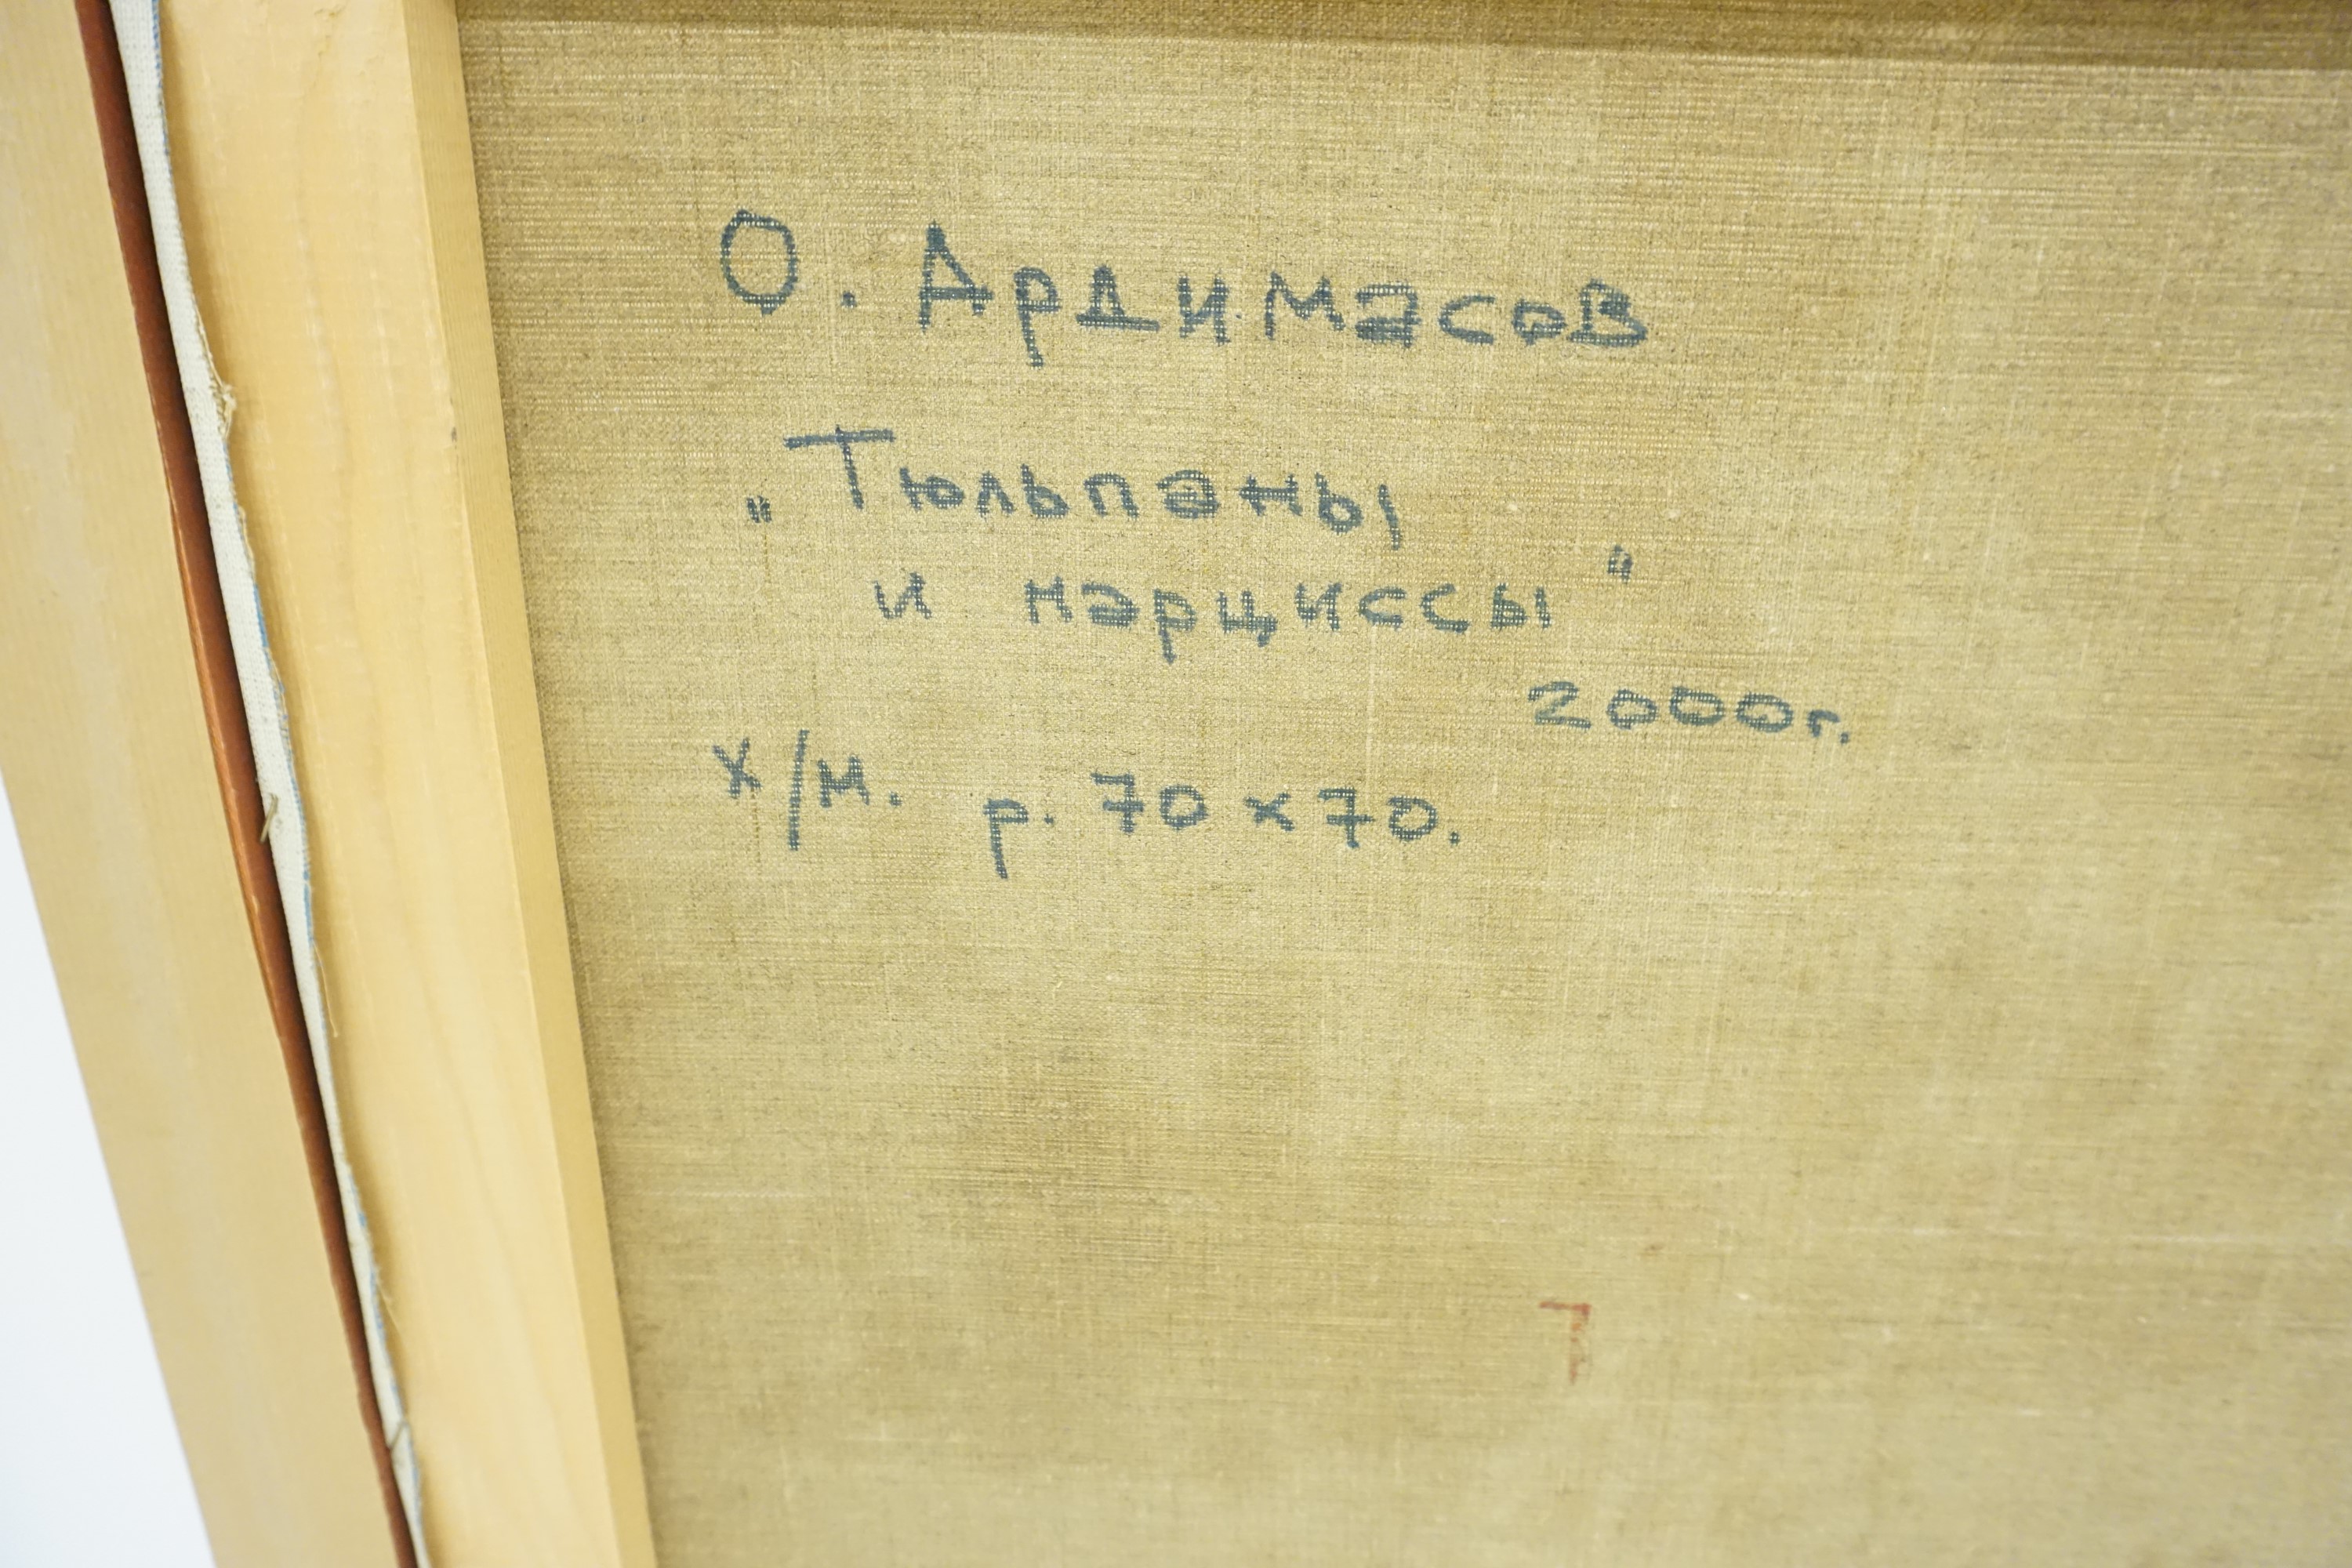 О. Ардимасов
„Тюльпаны
и нарциссы"
2000г.
х/м. р. 70х70.